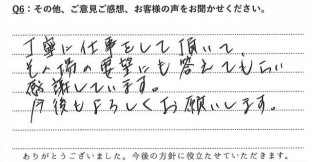 Q6：その他、ご意見ご感想、お客様の声をお聞かせください。
丁寧に仕事をして頂いて、
その場の要望にも答えてもらい
感謝しています。
今後もよろしくお願いします。
ありがとうございました。今後の方針に役立たせていただきます。